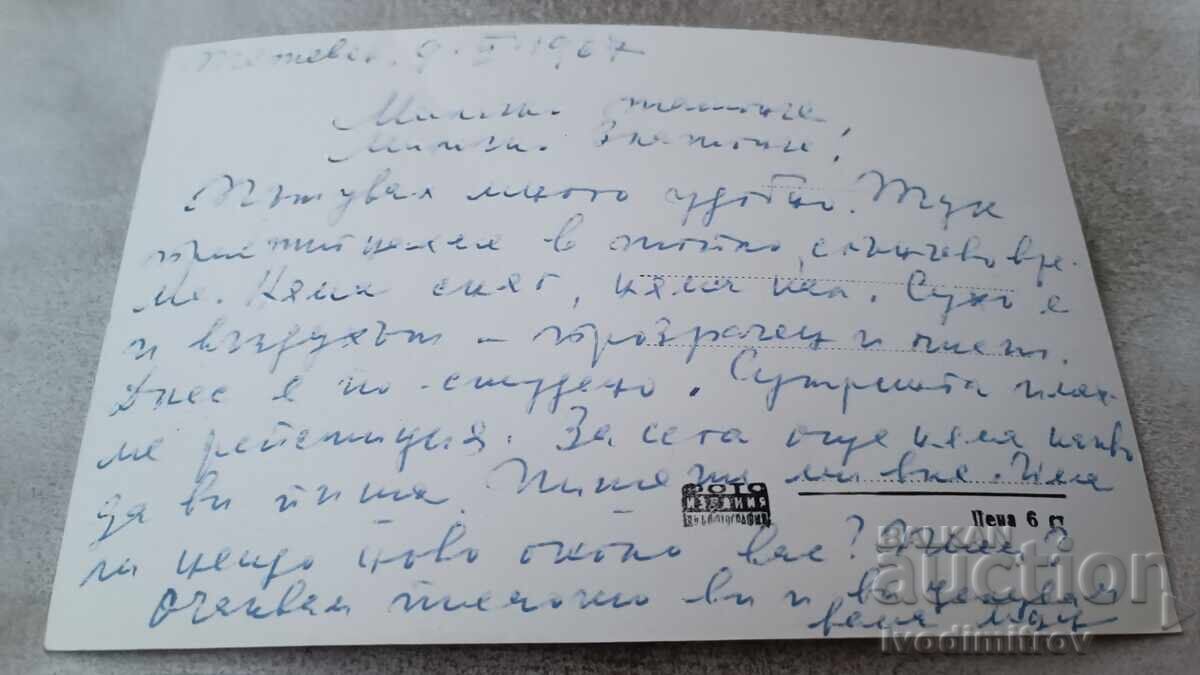 9. II 1967
Мили
Мили
Пътувах много удобно. Тук
пристигнахме в топло, слънчево вре-
ме. Няма сняг, няма кал. Сухо е
и въздухът – прозрачен и чист.
Днес е по-студено. Сутринта имах-
ме репетиция. За сега още няма какво
да ви пиша. Пишете ми вие. Има
ли нещо ново около вас?
Очаквам писмото ви и ви целувам
ФОТО
ИЗДАНИЯ
Цена 6 ст
BALKAN
auction
Ivodimitrov